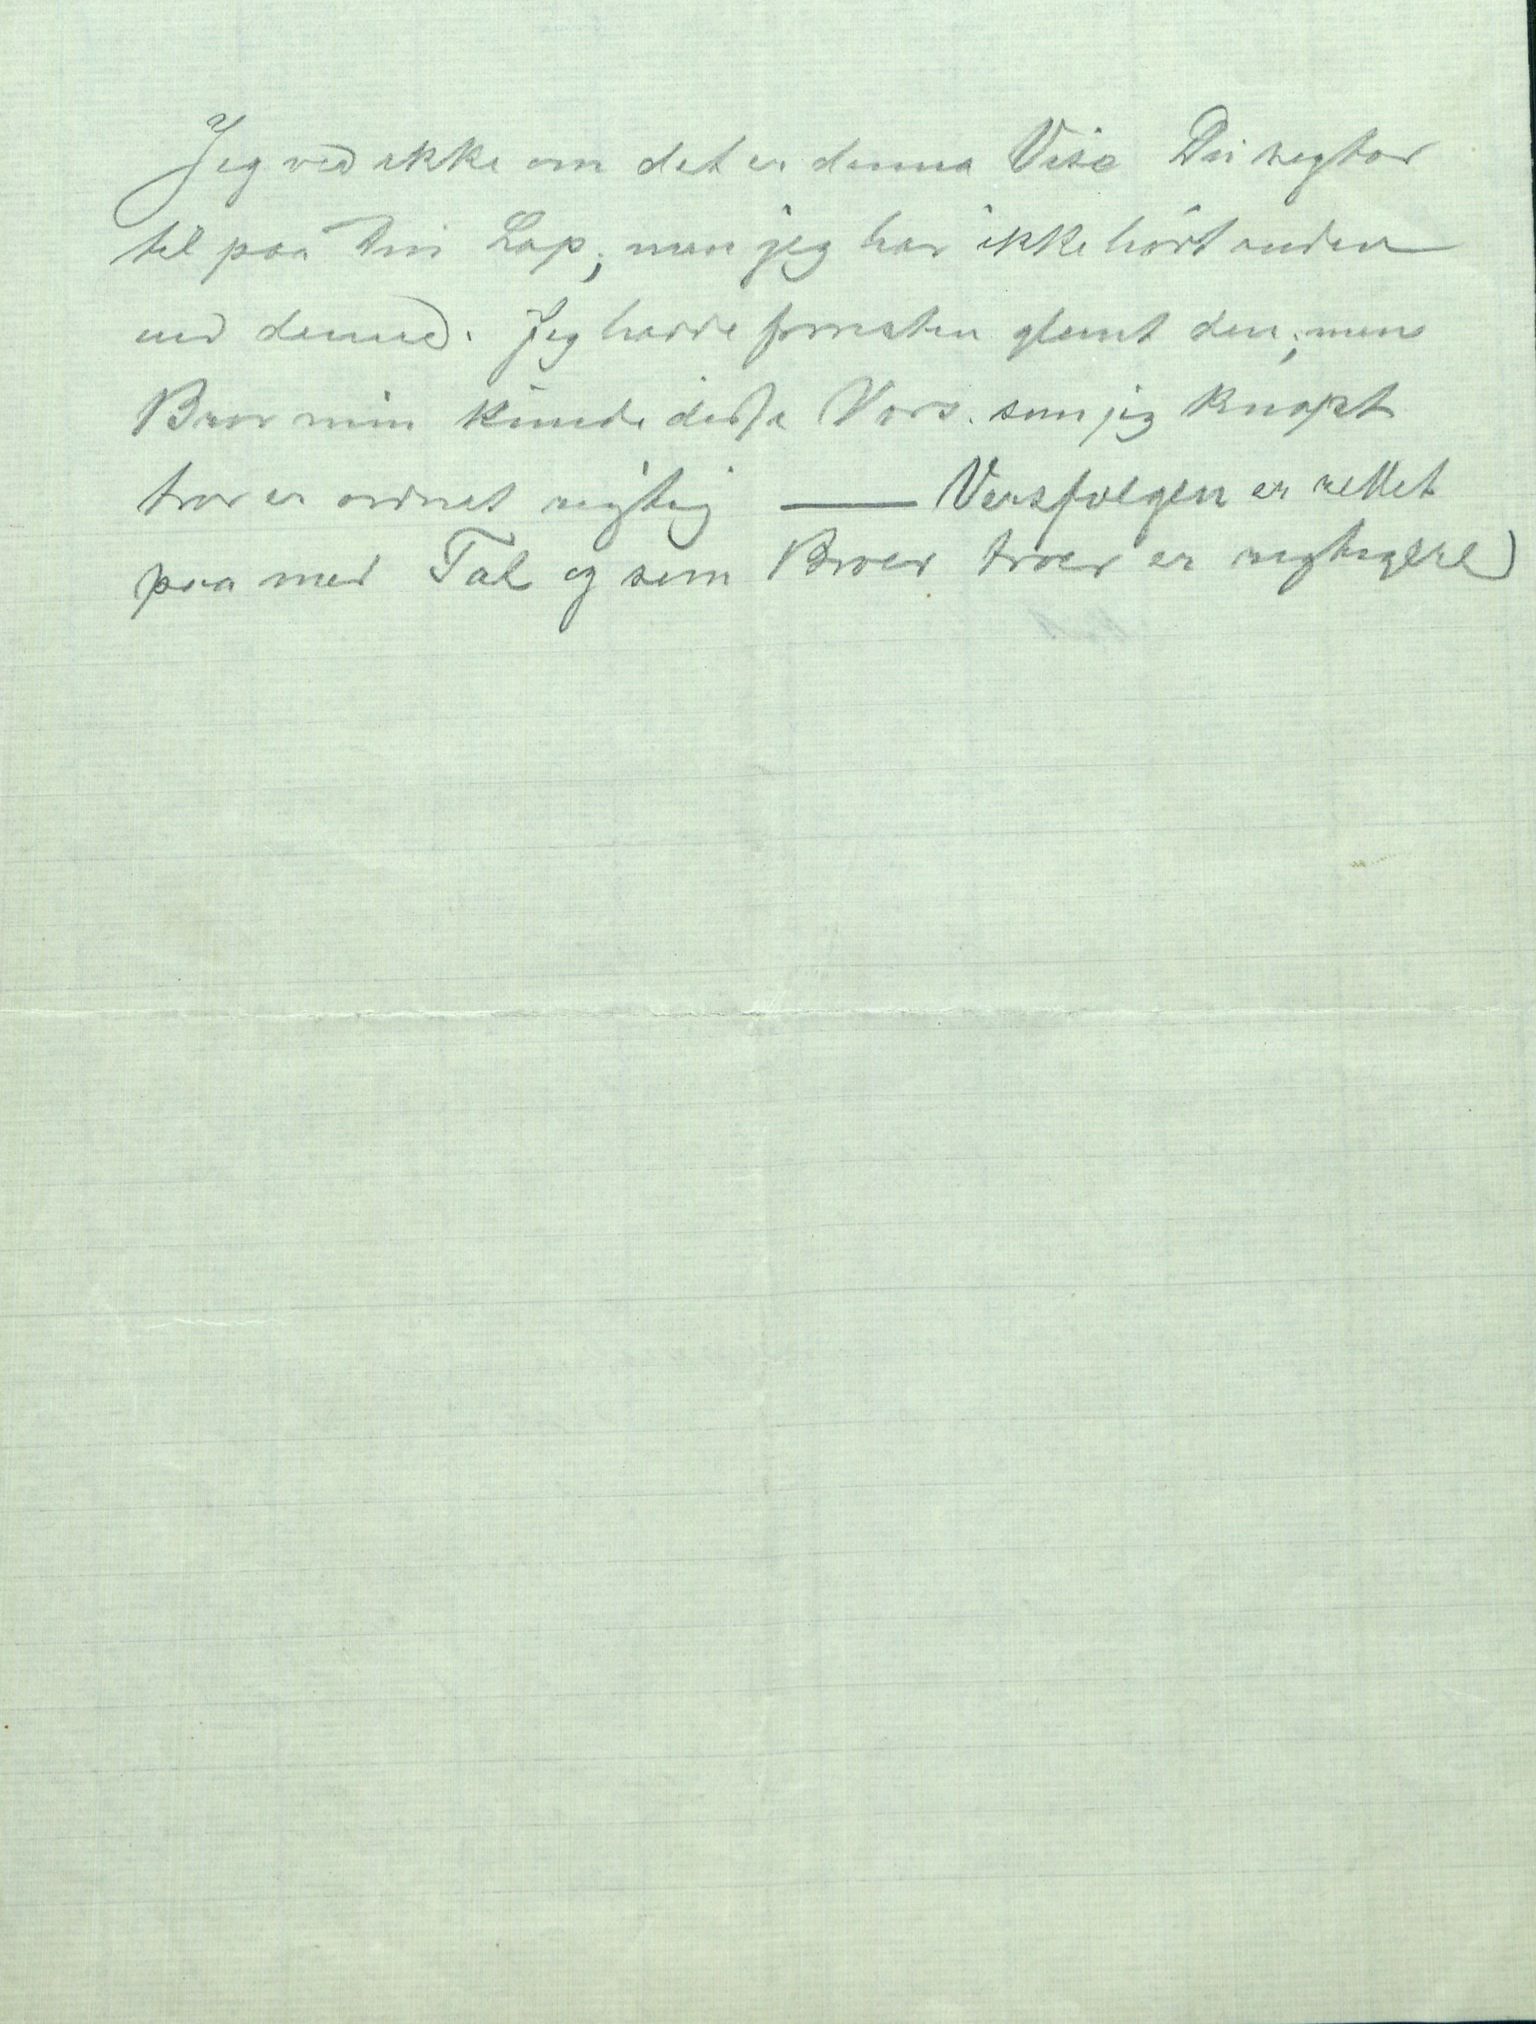 Jeg ved ikke om det er denne Vise Du segter
til paa Din Lap; men jeg har ikke hört anden
end denne. Jeg havde forresten glemt den; men
Bror min kunde disse Vers. som jeg knapt
tror er ordnet rigtig —— Versfølgen er rettet
paa med Tal og som Broer troer er rigtigere)